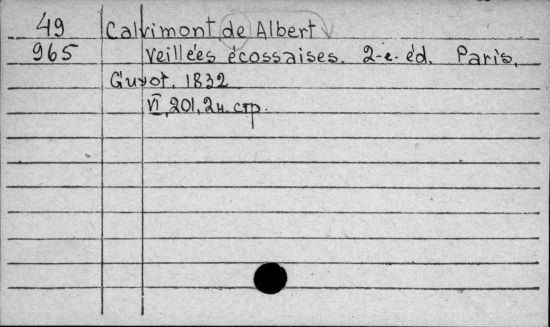 49 Calvimont de Albert
965 Veillées écossaises. 2-e. éd. Paris,
Guyot, 1832
VI, 201, 2 н. стр.